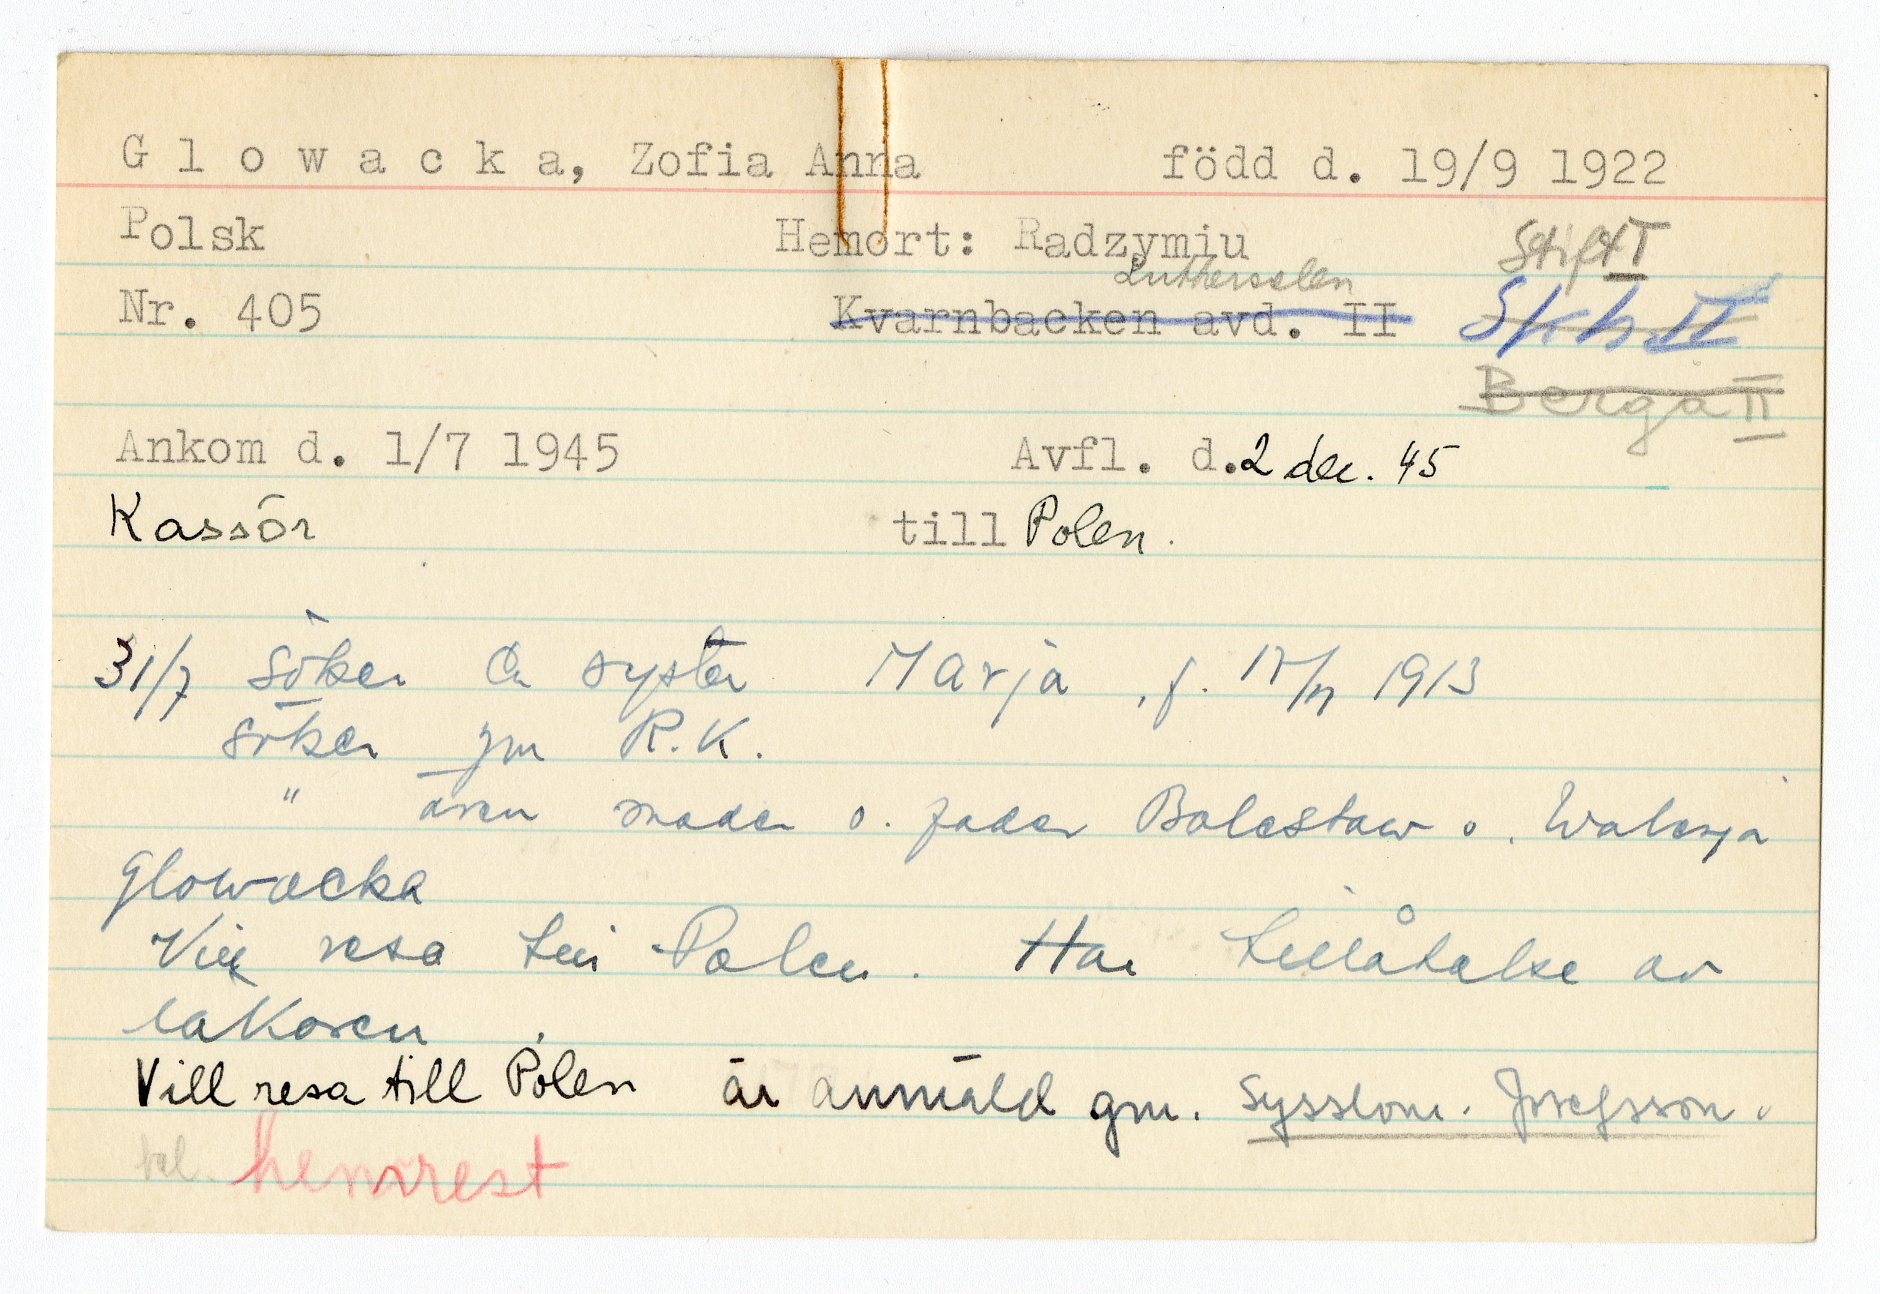 Glowacka, Zofia Anna född d. 19/9 1922
Polsk Hemort: Radzymiu Stift I
Luthersalen
Nr. 405 Kvarnbacken avd. II Skh. II
Berga II
Ankom d. 1/7 1945 Avfl. d. 2 dec. 45
Kassör till Polen.
31/7 Söker syster Marja, f. 1913
söker gm R.K.
" även moder o. fader Boleslaw o. Waleryja
Glowacka
Vill resa till Polen. Har tillåtelse av
läkaren.
Vill resa till Polen är anmäld gm. Sysslom. Josefsson.
hemrest